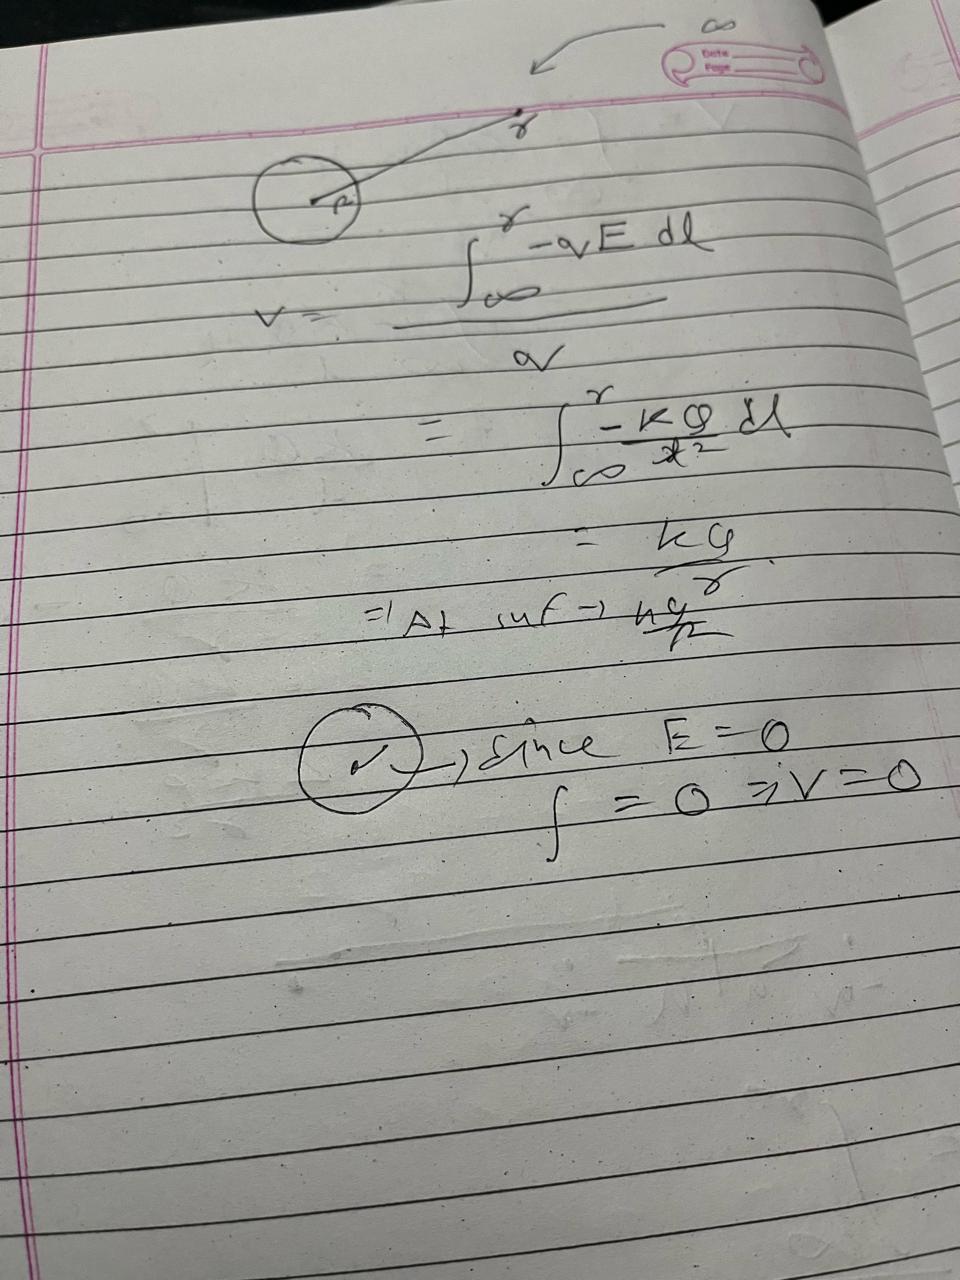 ∞
Date
Page
r
R
V = ∫_∞^r -qE dl / q
= ∫_∞^r -kQ/x² dl
= kQ/r
=) At surf → kQ/R
r → since E = 0
∫ = 0 ⇒ V = 0